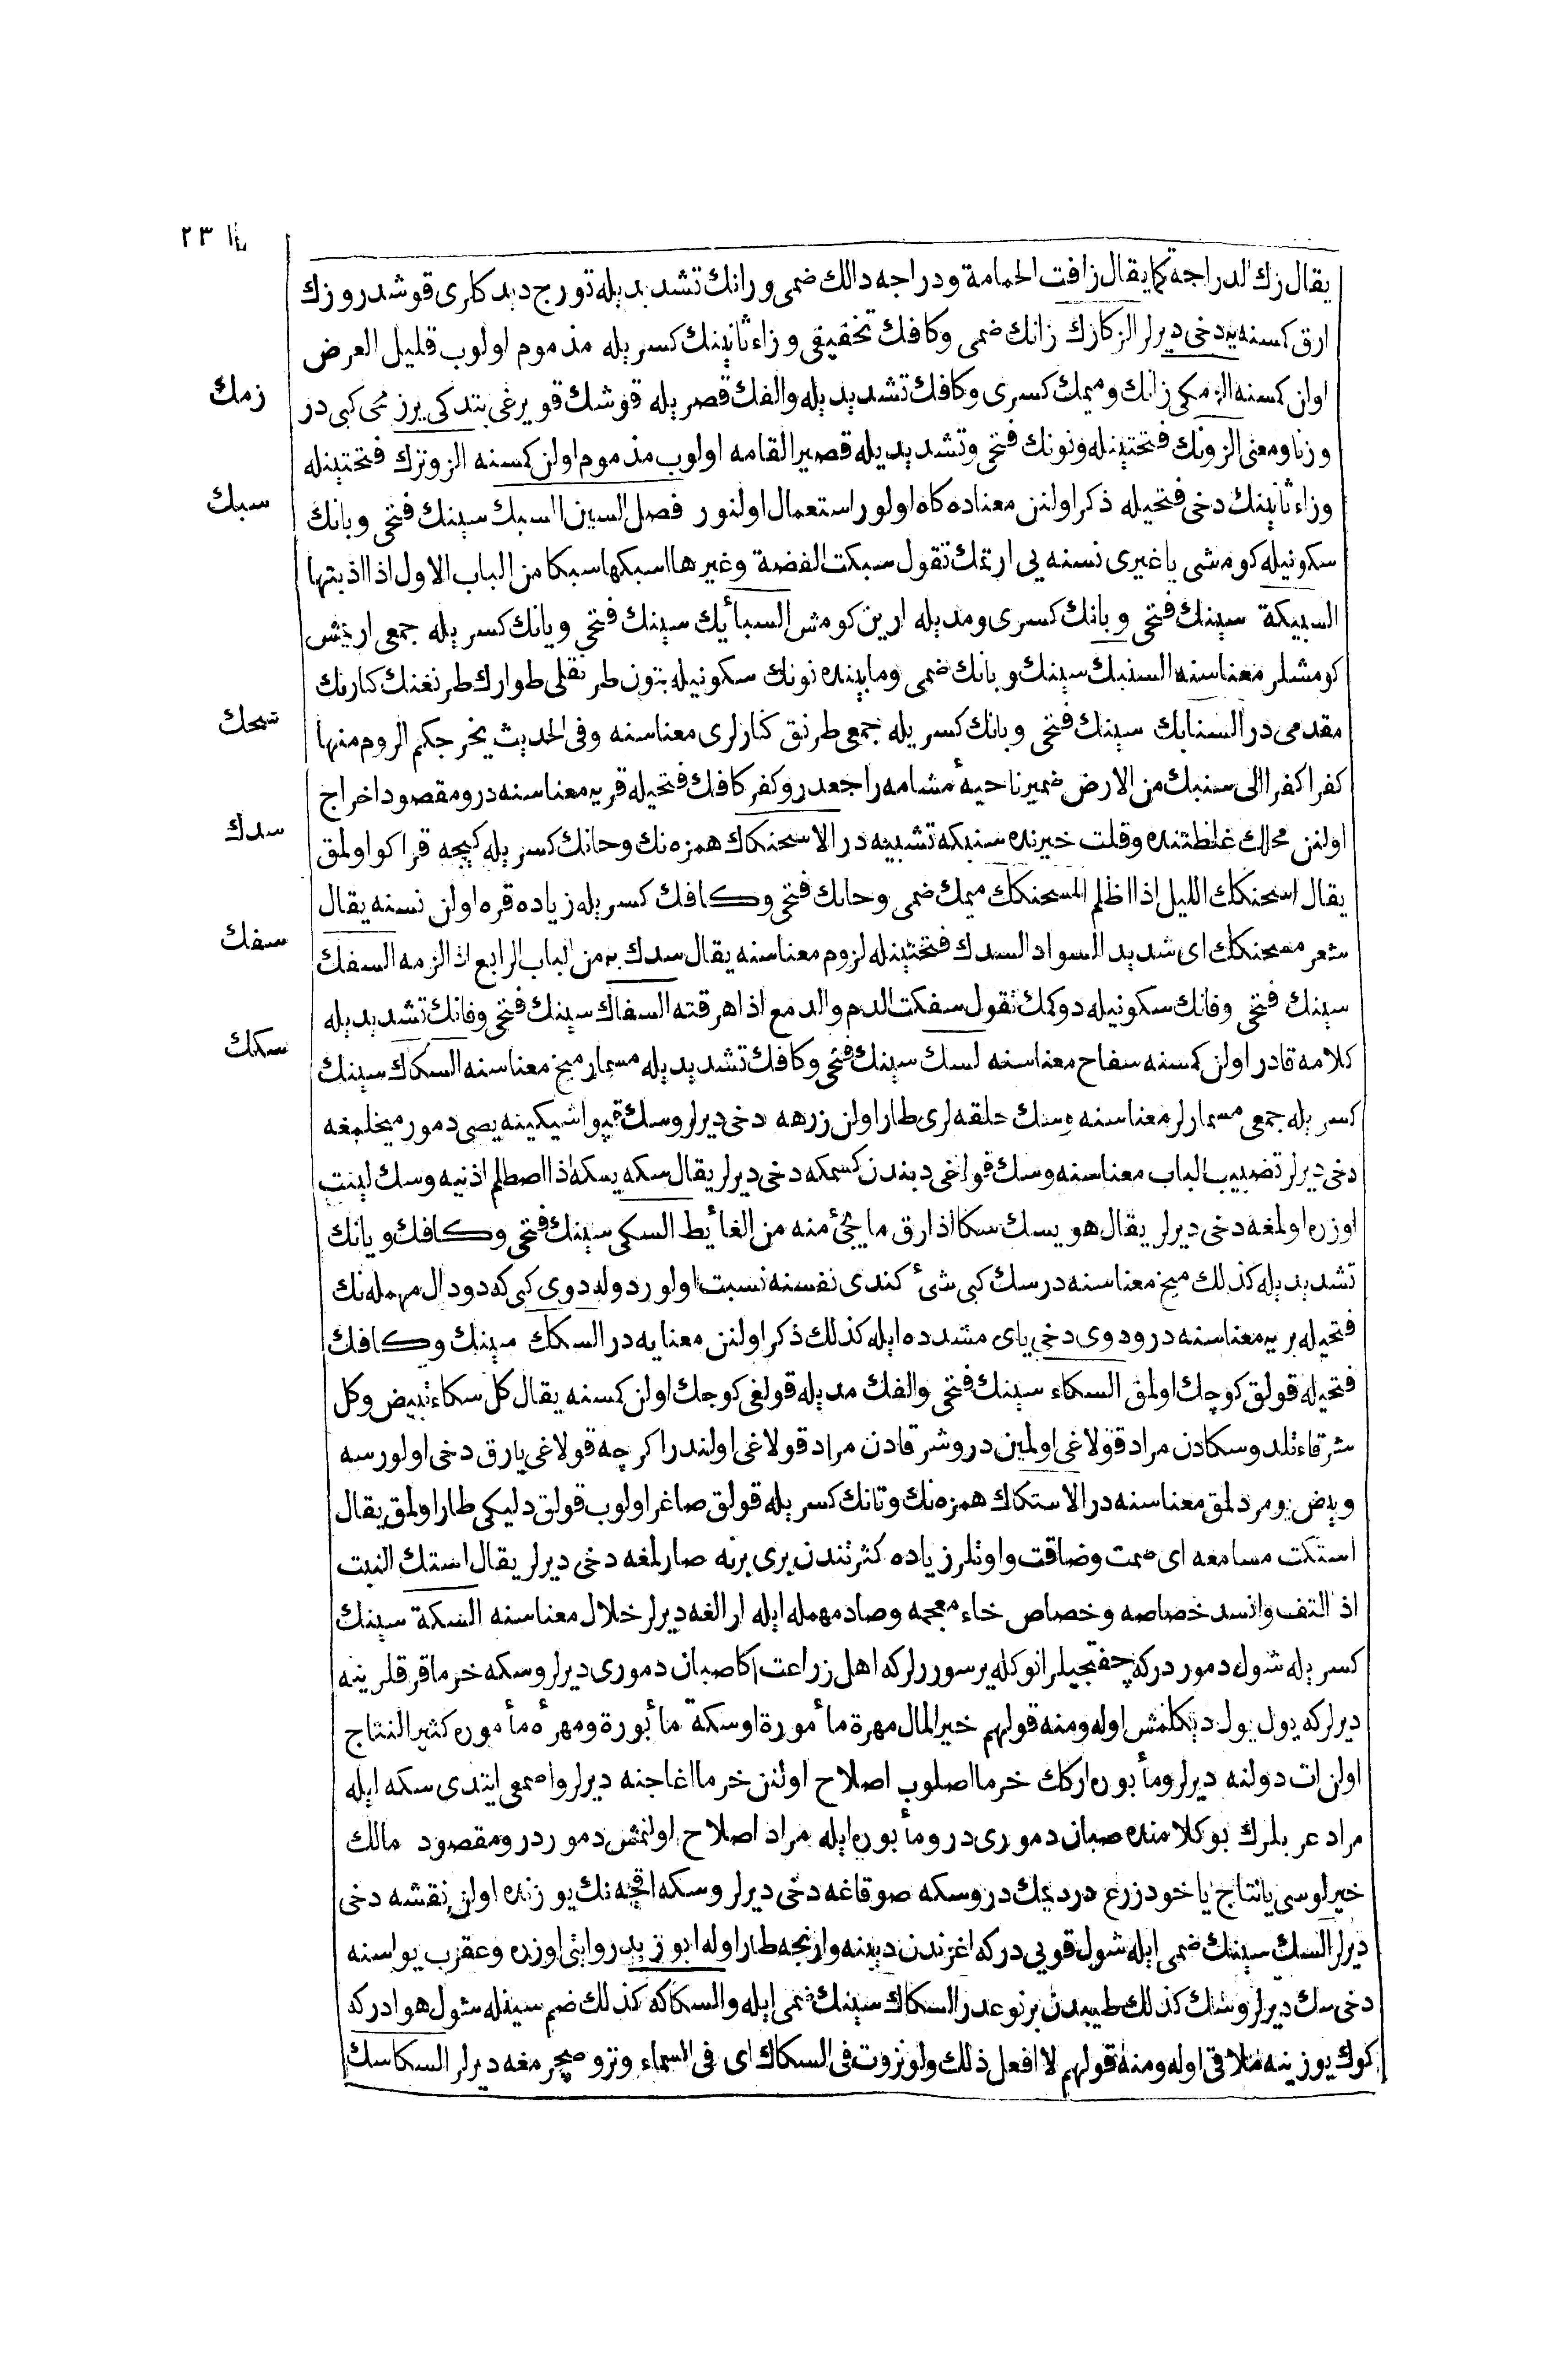 ثا ٢٣
يقال زك الدراجة كما يقال زافت الحمامة ودراجه دالك ضمى ورانك تشديديله تورج ديدكلرى قوشدر وزك
ارق كسنه يه دخى ديرلر الزكازك زانك ضمى وكافك تخفيفى وزاء ثانينك كسريله مذموم اولوب قليل العرض
اولن كسنه الزمكى زانك وميمك كسرى وكافك تشديديله والفك قصريله قوشك قويرغى بتدكى يرزمحى كبى در
زمك
وزنا ومعنى الزونك فتحتينله ونونك فتحى وتشديديله قصير القامه اولوب مذموم اولن كسنه الزوتزك فتحتينله
وزاء ثانينك دخى فتحيله ذكر اولنن معناده كاه اولور استعمال اولنور فصل السين السبك سينك فتحى وبانك
سبك
سكونيله كومشى ياغيرى نسنه يى ارتمك تقول سبكت الفضة وغيرها اسبكها سبكا من الباب الاول اذا اذبتها
السبيكة سينك فتحى وبانك كسرى ومديله ارين كومش السبائك سينك فتحى ويانك كسريله جمعى ارنمش
كومشلر معناسنه السنبك سينك وبانك ضمى ومابينده نونك سكونيله بتون طرنقلى طوارك طرنغنك كنارنك
مقدمى در السنابك سينك فتحى وبانك كسريله جمعى طرنق كنارلرى معناسنه وفى الحديث يخرجكم الروم منها
سحك
كفرا كفرا الى سنبك من الارض ضمير ناحيهٔ مشامه راجعدر وكفر كافك فتحيله قريه معناسنه در ومقصود اخراج
اولنن محلك غلظتنده وقلت خيرنده سنبكه تشبيه در الاسحنكاك همزه نك وحانك كسريله كيجه قراكو اولمق
سدك
يقال اسحنكك الليل اذا اظلم المسحنكك ميمك ضمى وحانك فتحى وكافك كسريله زياده قره اولن نسنه يقال
شعر مسحنكك اى شديد السواد السدك فتحتينله لزوم معناسنه يقال سدك به من الباب الرابع اذا لزمه السفك
سفك
سينك فتحى وفانك سكونيله دوكمك تقول سفكت الدم والدمع اذا هرقته السفاك سينك فتحى وفانك تشديديله
كلامه قادر اولن كمسنه سفاح معناسنه السك سينك فتحى وكافك تشديديله مسمار ميخ معناسنه السكاك سينك
سكك
كسريله جمعى مسمارلر معناسنه وسك حلقه لرى طار اولن زرهه دخى ديرلر وسك قپو اشيكينه يصى دمور ميخلمغه
دخى ديرلر تضبيب الباب معناسنه وسك قولاغى دبندن كسمكه دخى ديرلر يقال سكه يسكه اذا اصطلم اذنيه وسك لينت
اوزره اولمغه دخى ديرلر يقال هو يسك سكا اذا رق ما يجئ منه من الغائط السكى سينك فتحى وكافك ويانك
تشديديله كذلك ميخ معناسنه در سك كبى شئ كندى نفسنه نسبت اولور دوله دوى كبى كه دو دال مهمله نك
فتحيله بريه معناسنه در ودوى دخى ياى مشدده ايله كذلك ذكر اولنن معنايه در السكك سينك وكافك
فتحيله قولق كوچك اولمق السكاء سينك فتحى والفك مديله قولغى كوچك اولن كمسنه يقال كل سكاء تبيض وكل
شرقاء تلد وسكادن مراد قولاغى اولمين در وشرقادن مراد قولاغى اولندر اكرچه قولاغى يارق دخى اولورسه
وبيض يومردلمق معناسنه در الاستكاك همزه نك وتانك كسريله قولق صاغر اولوب قولق دليكى طار اولمق يقال
استكت مسامعه اى صمت وضاقت واوتلر زياده كثرتندن برى برنه صارلمغه دخى ديرلر يقال استك النبت
اذ التف وانسد خصاصه وخصاص خاء معجمه وصاد مهمله ايله ارالغه ديرلر خلال معناسنه السكة سينك
كسريله شول دموردركه چفتجيلر انوكله ير سوررلركه اهل زراعت اكا صبان دمورى ديرلر وسكه خرما قرقلرينه
ديرلركه يول يول ديكلمش اوله ومنه قولهم خير المال مهرة مأمورة او سكة مأبورة ومهرهٔ مأموره كثير النتاج
اولن ات دولنه ديرلر ومأبوره اركك خرما اصلوب اصلاح اولنن خرما اغاجنه ديرلر واصمعى ايتدى سكه ايله
مراد عربلرك بو كلامنده صبان دمورى در ومأبوره ايله مراد اصلاح اولنمش دموردر ومقصود مالك
خيرلوسى يا نتاج ياخود زرع در ديمك در وسكه صوقاغه دخى ديرلر وسكه اقچه نك يوزنده اولن نقشه دخى
ديرلر السك سينك ضمى ايله شول قويى دركه اغزندن ديبنه وارنجه طار اوله ابو زيد روايتى اوزره وعقرب يواسنه
دخى سك ديرلر وسك كذلك طيبدن بر نوعدر السكاك سينك ضمى ايله والسكاكه كذلك ضم سينله شول هوادركه
كوك يوزينه ملاقى اوله ومنه قولهم لا افعل ذلك ولو نزوت فى السكاك اى فى السماء ونزو صچرمغه ديرلر السكاسك